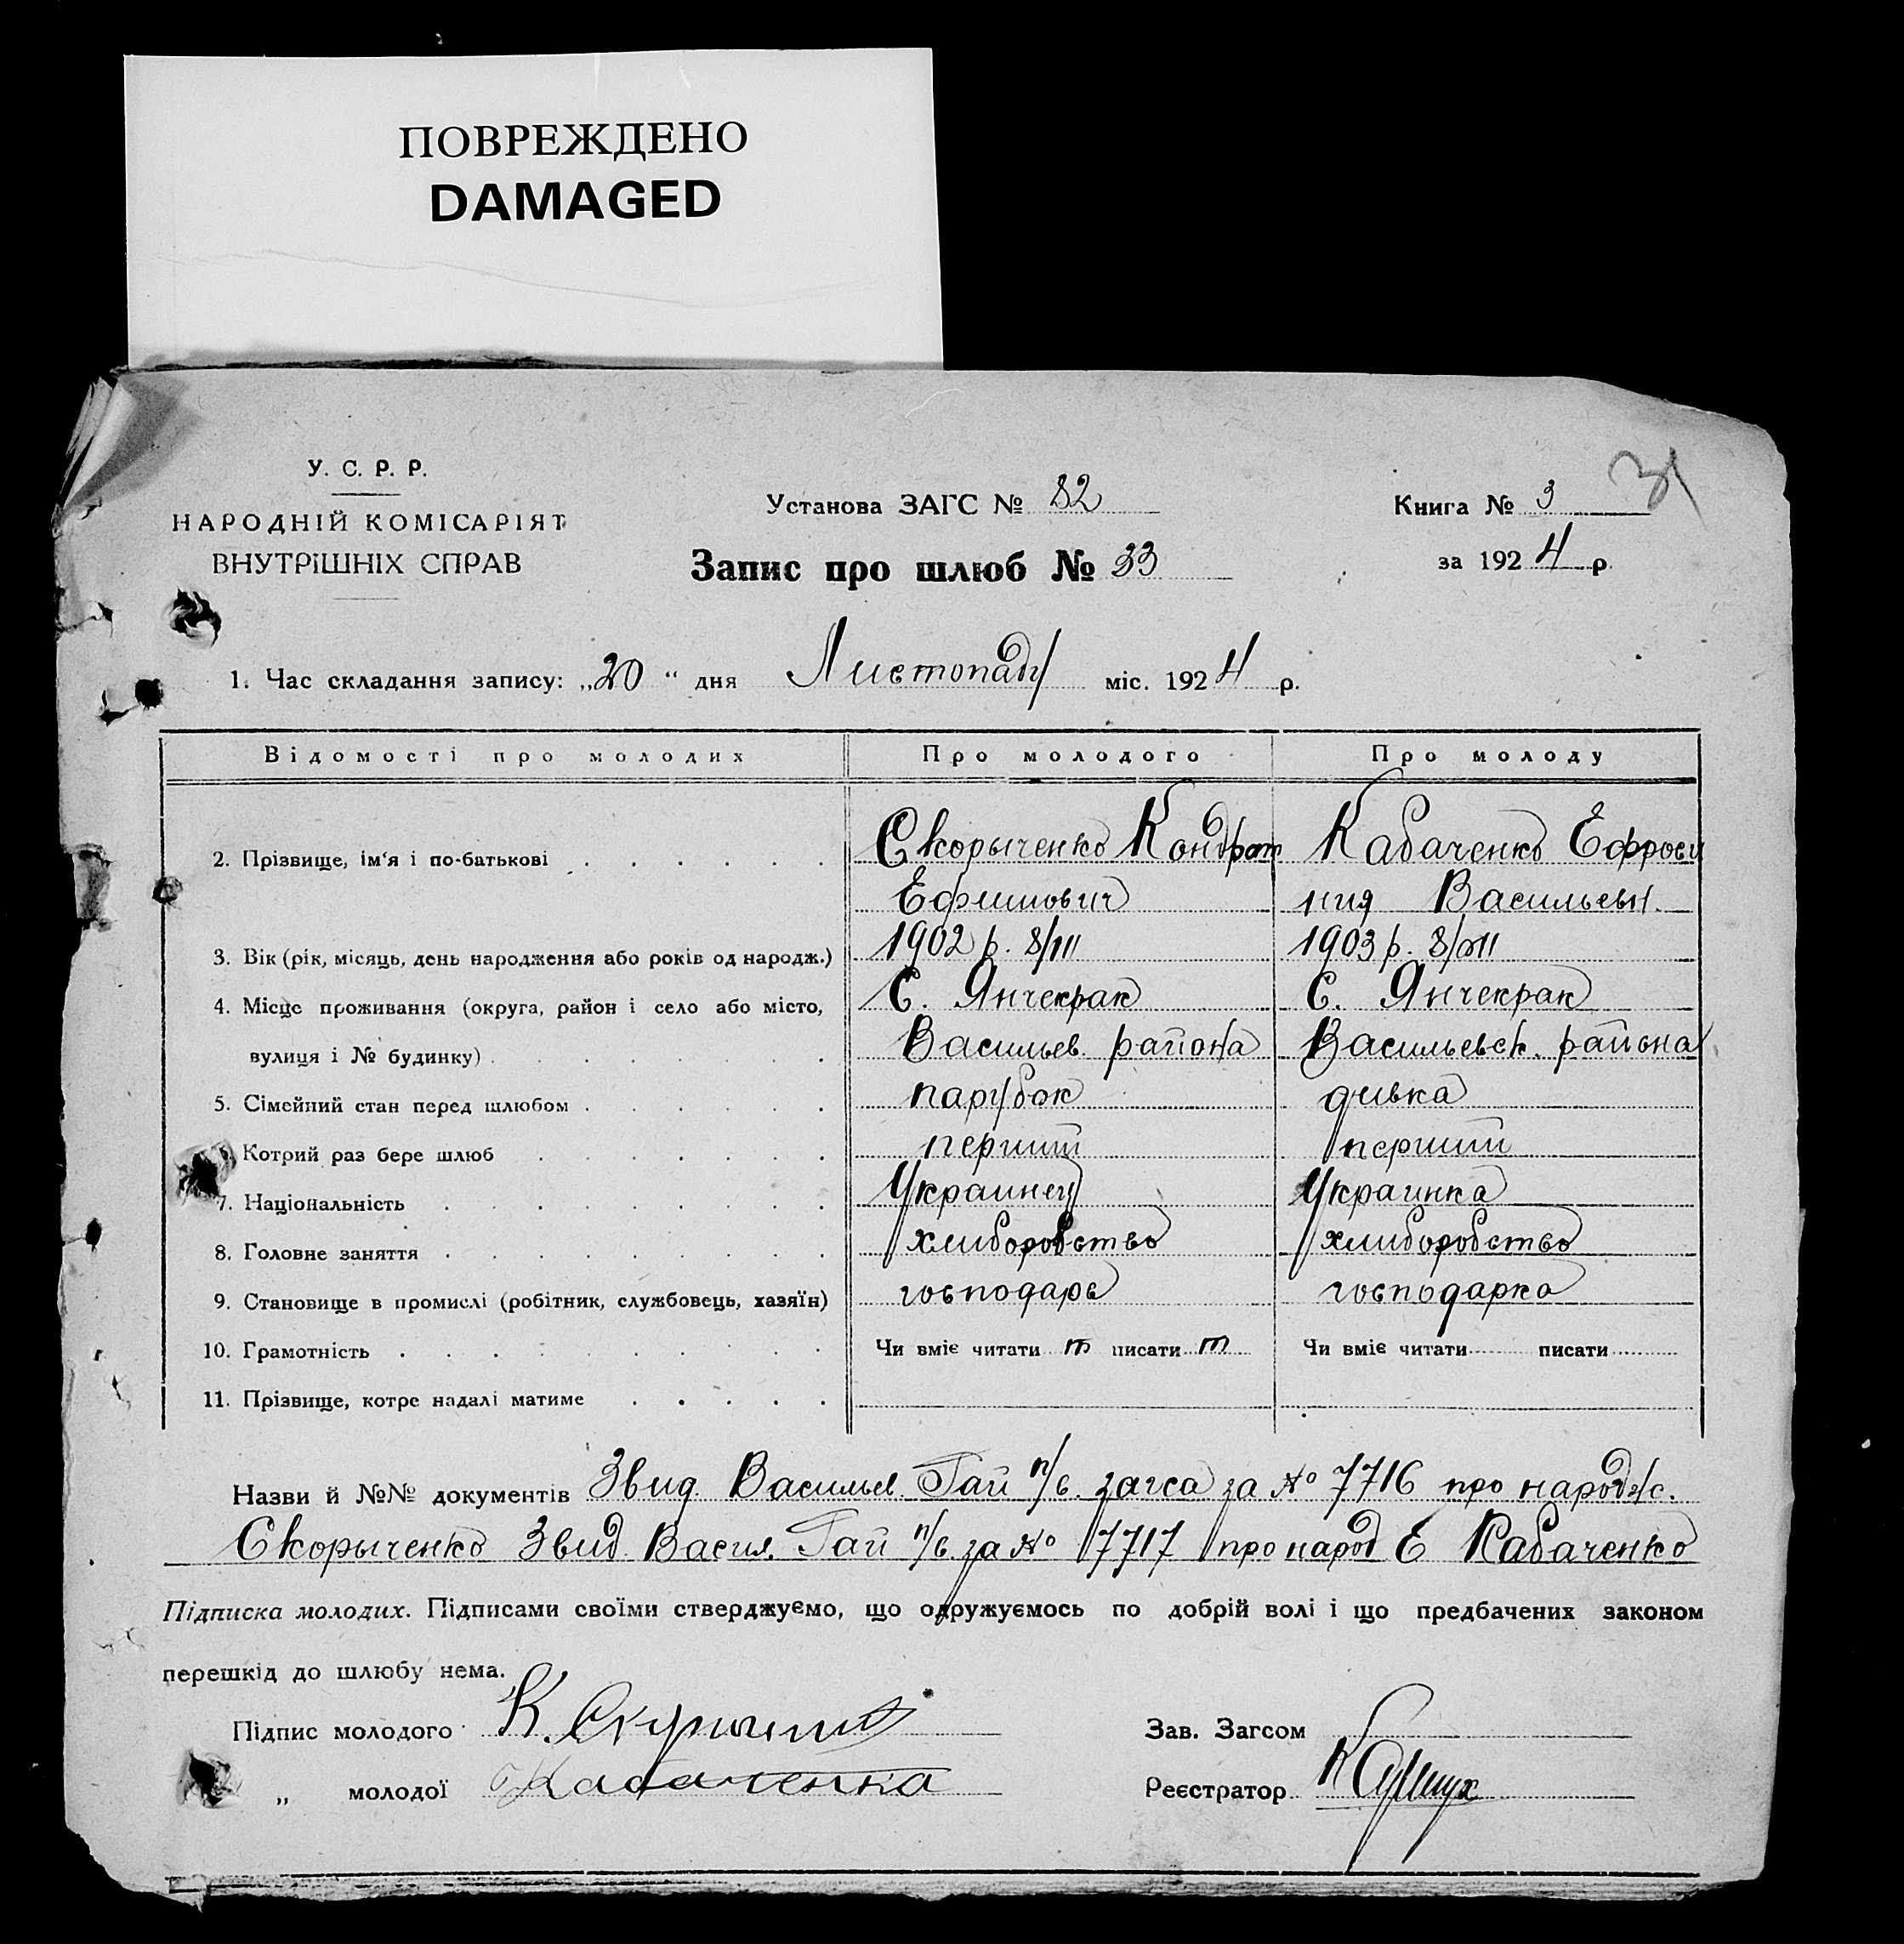 ПОВРЕЖДЕНО
DAMAGED
31
У. С. Р. Р.
НАРОДНІЙ КОМІСАРІЯТ
ВНУТРІШНІХ СПРАВ
Установа ЗАГС № 82
Запис про шлюб № 33
Книга № 3
за 1924 р.
1. Час складання запису: „20 “ дня Листопаду міс. 1924 р.
Відомості про молодих Про молодого Про молоду
2. Прізвище, ім'я і по-батькові Скорыченко Кондрат Кабаченко Ефроси
Ефимович ния Васильевн.
3. Вік (рік, місяць, день народження або років од народж.) 1902 р. 8/III 1903 р. 8/VII
4. Місце проживання (округа, район і село або місто, С. Янчекрак С. Янчекрак
вулиця і № будинку) Васильев. района Васильевск. района
5. Сімейний стан перед шлюбом парубок дивка
Котрий раз бере шлюб перший перший
7. Національність Украинец Украинка
8. Головне заняття хлиборобство хлиборобство
9. Становище в промислі (робітник, службовець, хазяїн) господарь господарка
10. Грамотність Чи вміє читати т писати т Чи вміє читати писати
11. Прізвище, котре надалі матиме
Назви й №№ документів Звид. Васильев. Рай п/в. загса за № 7716 про народж.
Скорыченко Звид. Васил. Рай п/в. за № 7717 про народ Е Кабаченко
Підписка молодих. Підписами своїми стверджуємо, що одружуємось по добрій волі і що предбачених законом
перешкід до шлюбу нема.
Підпис молодого К.
Зав. Загсом
„ молодої Кабаченка
Реєстратор